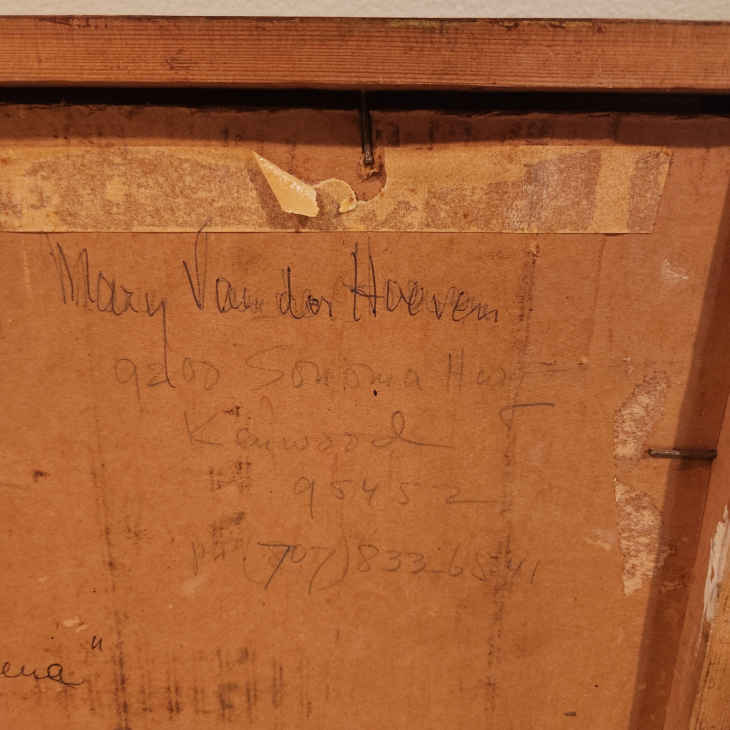 Mary Van der Hoeven
9200 Sonoma Hwy
Kenwood
95452
ph (707) 833-6541
ena"